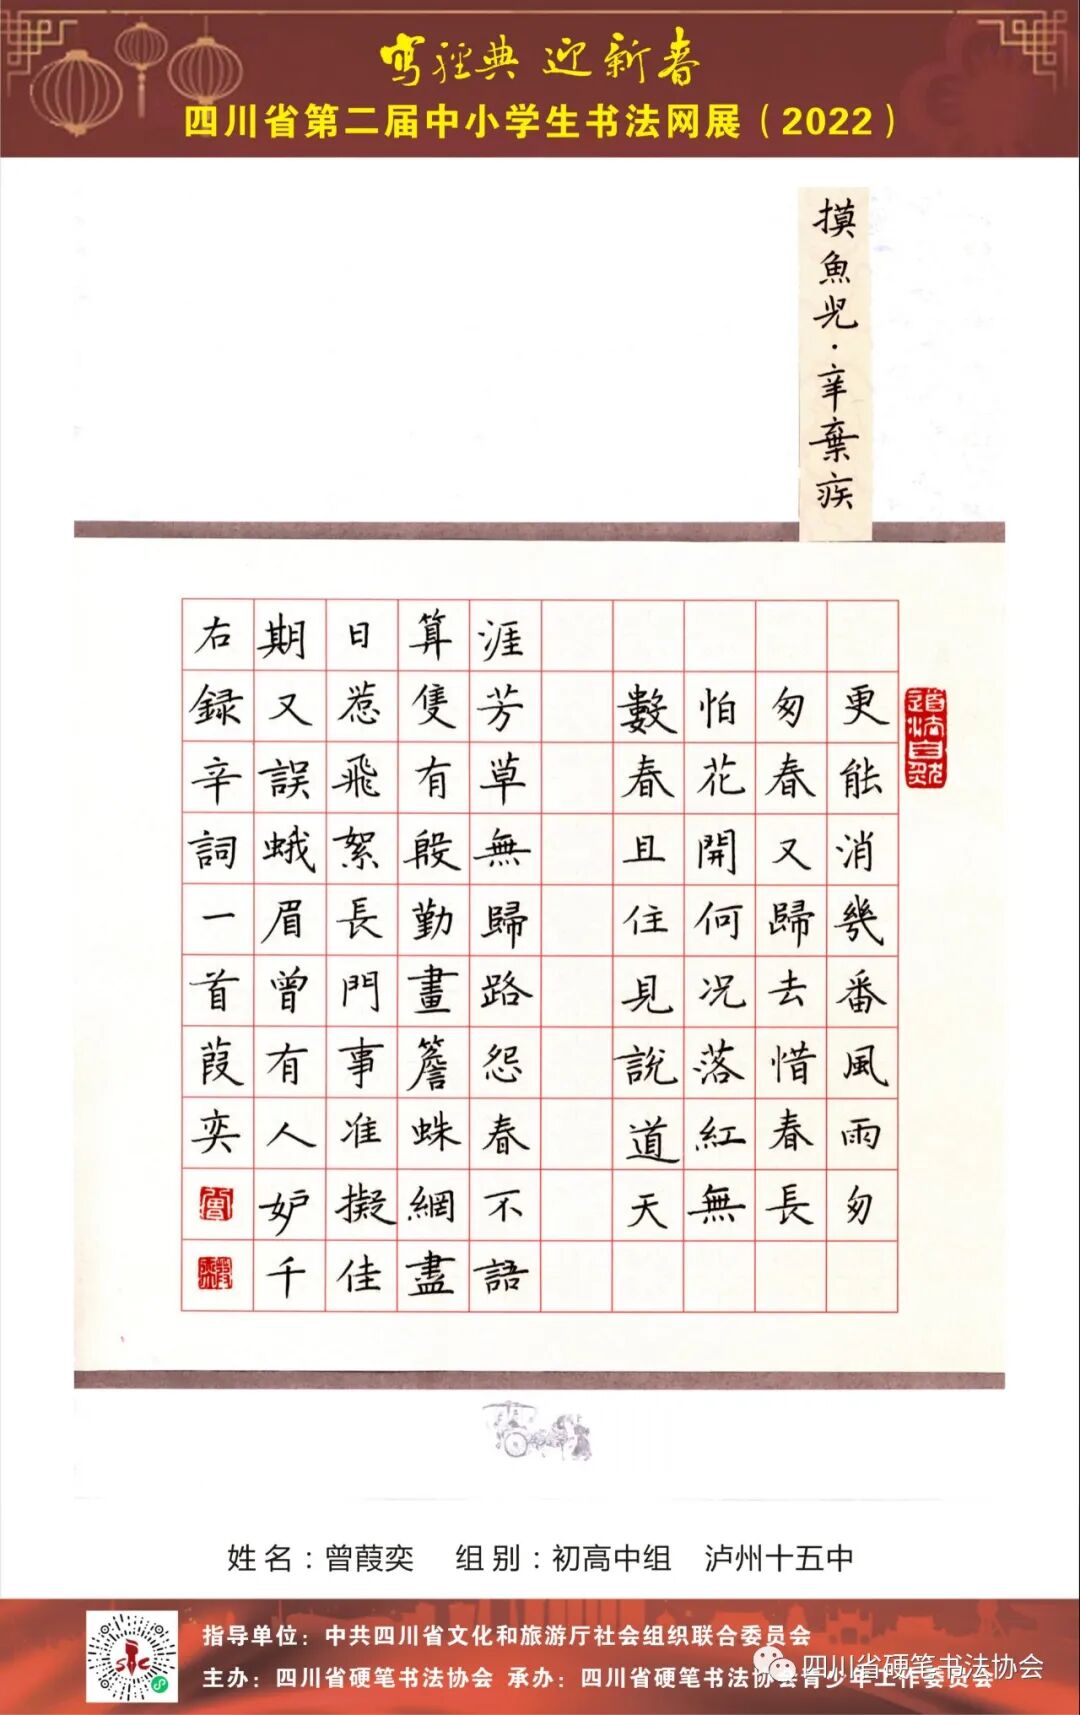 写經典 迎新春
四川省第二届中小学生书法网展（2022）
摸魚兒·辛棄疾
更能消幾番風雨匆
匆春又歸去惜春長
怕花開何况落紅無
數春且住見說道天
涯芳草無歸路怨春不語
算隻有殷勤畫簷蛛網盡
日惹飛絮長門事准擬佳
期又誤蛾眉曾有人妒千
右録辛詞一首葭奕
道法自然
姓名：曾葭奕 组别：初高中组 泸州十五中
指导单位：中共四川省文化和旅游厅社会组织联合委员会
主办：四川省硬笔书法协会 承办：四川省硬笔书法协会青少年工作委员会
四川省硬笔书法协会